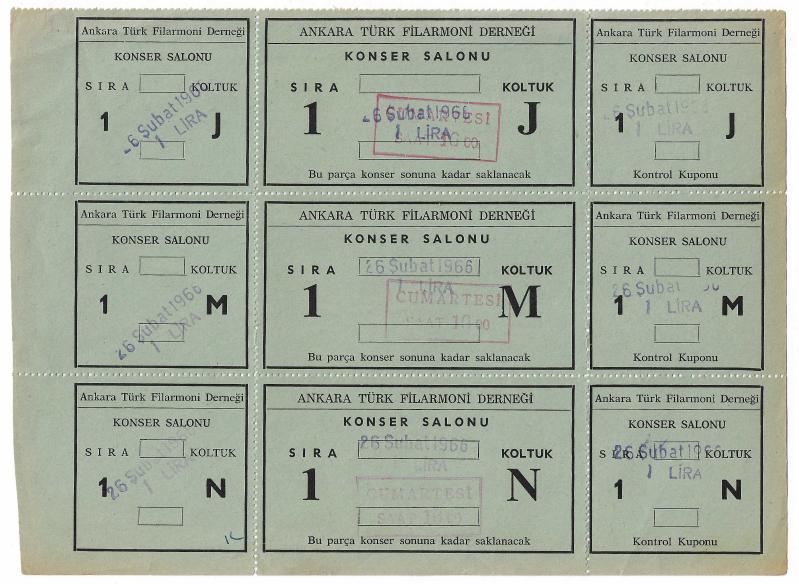 Ankara Türk Filarmoni Derneği
KONSER SALONU
SIRA KOLTUK
1 J
26 Şubat 1966
1 LİRA
ANKARA TÜRK FİLARMONİ DERNEĞİ
KONSER SALONU
SIRA KOLTUK
1 J
26 Şubat 1966
1 LİRA
CUMARTESİ
SAAT
Bu parça konser sonuna kadar saklanacak
Ankara Türk Filarmoni Derneği
KONSER SALONU
SIRA KOLTUK
1 J
26 Şubat 1966
1 LİRA
Kontrol Kuponu
Ankara Türk Filarmoni Derneği
KONSER SALONU
SIRA KOLTUK
1 M
26 Şubat 1966
1 LİRA
ANKARA TÜRK FİLARMONİ DERNEĞİ
KONSER SALONU
SIRA KOLTUK
1 M
26 Şubat 1966
1 LİRA
CUMARTESİ
SAAT
Bu parça konser sonuna kadar saklanacak
Ankara Türk Filarmoni Derneği
KONSER SALONU
SIRA KOLTUK
1 M
26 Şubat
1 LİRA
Kontrol Kuponu
Ankara Türk Filarmoni Derneği
KONSER SALONU
SIRA KOLTUK
1 N
26 Şubat
1 LİRA
ANKARA TÜRK FİLARMONİ DERNEĞİ
KONSER SALONU
SIRA KOLTUK
1 N
26 Şubat 1966
1 LİRA
CUMARTESİ
SAAT
Bu parça konser sonuna kadar saklanacak
Ankara Türk Filarmoni Derneği
KONSER SALONU
SIRA KOLTUK
1 N
26 Şubat 1966
1 LİRA
Kontrol Kuponu